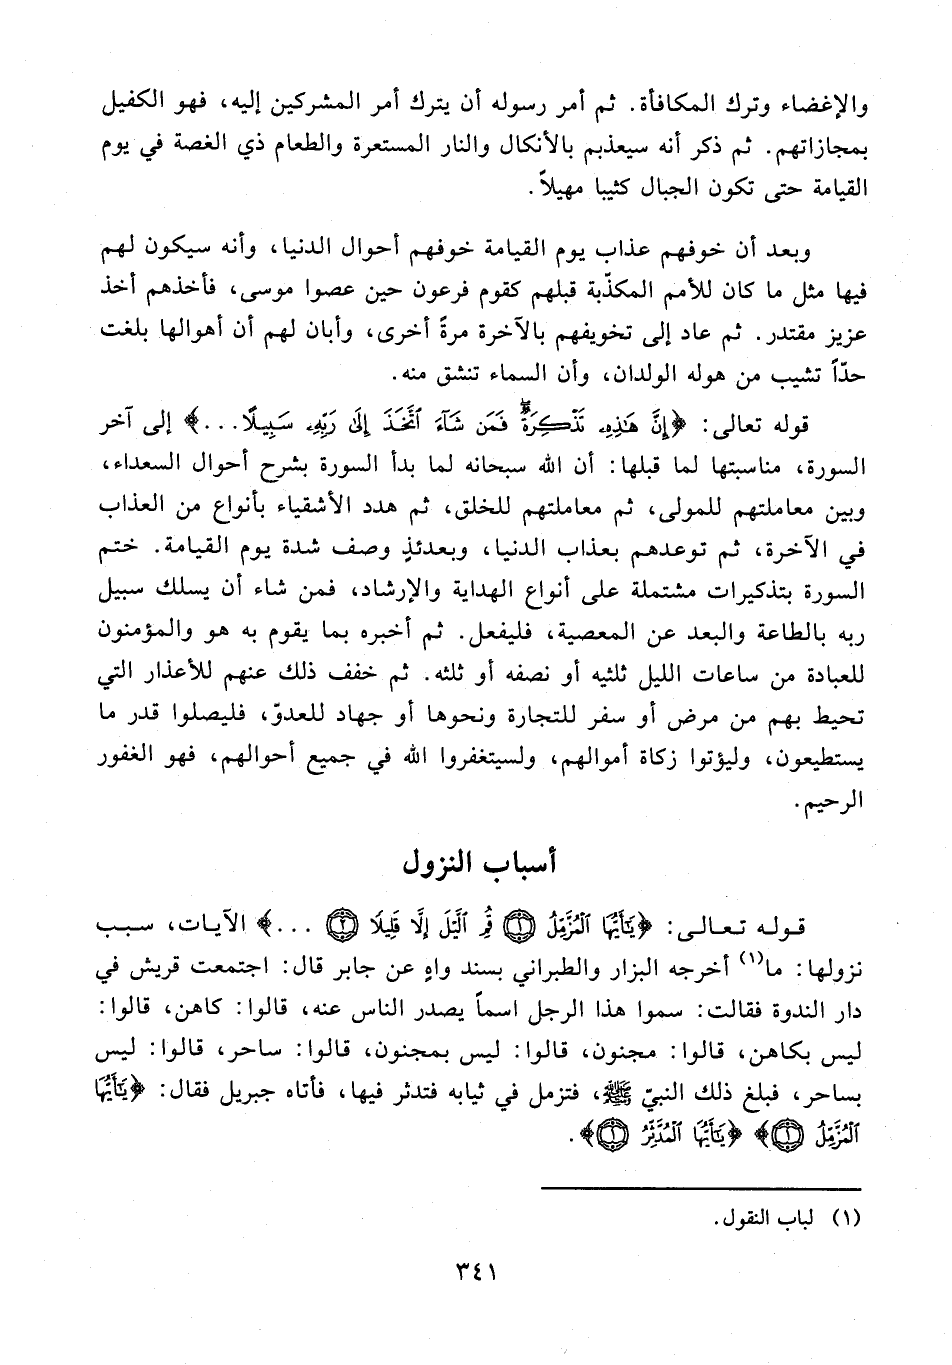 والإغضاء وترك المكافأة. ثم أمر رسوله أن يترك أمر المشركين إليه، فهو الكفيل
بمجازاتهم. ثم ذكر أنه سيعذبم بالأنكال والنار المستعرة والطعام ذي الغصة في يوم
القيامة حتى تكون الجبال كثيبا مهيلاً.
وبعد أن خوفهم عذاب يوم القيامة خوفهم أحوال الدنيا، وأنه سيكون لهم
فيها مثل ما كان للأمم المكذّبة قبلهم كقوم فرعون حين عصوا موسى، فأخذهم أخذ
عزيز مقتدر. ثم عاد إلى تخويفهم بالآخرة مرةً أخرى، وأبان لهم أن أهوالها بلغت
حدّاً تشيب من هوله الولدان، وأن السماء تنشق منه.
قوله تعالى: ﴿إِنَّ هَٰذِهِۦ تَذْكِرَةٌۖ فَمَن شَآءَ ٱتَّخَذَ إِلَىٰ رَبِّهِۦ سَبِيلًا...﴾ إلى آخر
السورة، مناسبتها لما قبلها: أن الله سبحانه لما بدأ السورة بشرح أحوال السعداء،
وبين معاملتهم للمولى، ثم معاملتهم للخلق، ثم هدد الأشقياء بأنواع من العذاب
في الآخرة، ثم توعدهم بعذاب الدنيا، وبعدئذٍ وصف شدة يوم القيامة. ختم
السورة بتذكيرات مشتملة على أنواع الهداية والإرشاد، فمن شاء أن يسلك سبيل
ربه بالطاعة والبعد عن المعصية، فليفعل. ثم أخبره بما يقوم به هو والمؤمنون
للعبادة من ساعات الليل ثلثيه أو نصفه أو ثلثه. ثم خفف ذلك عنهم للأعذار التي
تحيط بهم من مرض أو سفر للتجارة ونحوها أو جهاد للعدوّ، فليصلوا قدر ما
يستطيعون، وليؤتوا زكاة أموالهم، ولسيتغفروا الله في جميع أحوالهم، فهو الغفور
الرحيم.
أسباب النزول
قوله تعالى: ﴿يَٰٓأَيُّهَا ٱلْمُزَّمِّلُ ۝١ قُمِ ٱلَّيْلَ إِلَّا قَلِيلًا ۝٢ ...﴾ الآيات، سبب
نزولها: ما(١) أخرجه البزار والطبراني بسند واهٍ عن جابر قال: اجتمعت قريش في
دار الندوة فقالت: سموا هذا الرجل اسماً يصدر الناس عنه، قالوا: كاهن، قالوا:
ليس بكاهن، قالوا: مجنون، قالوا: ليس بمجنون، قالوا: ساحر، قالوا: ليس
بساحر، فبلغ ذلك النبيّ ﷺ، فتزمل في ثيابه فتدثر فيها، فأتاه جبريل فقال: ﴿يَٰٓأَيُّهَا
ٱلْمُزَّمِّلُ ۝١﴾ ﴿يَٰٓأَيُّهَا ٱلْمُدَّثِّرُ ۝١﴾.
(١) لباب النقول.
٣٤١